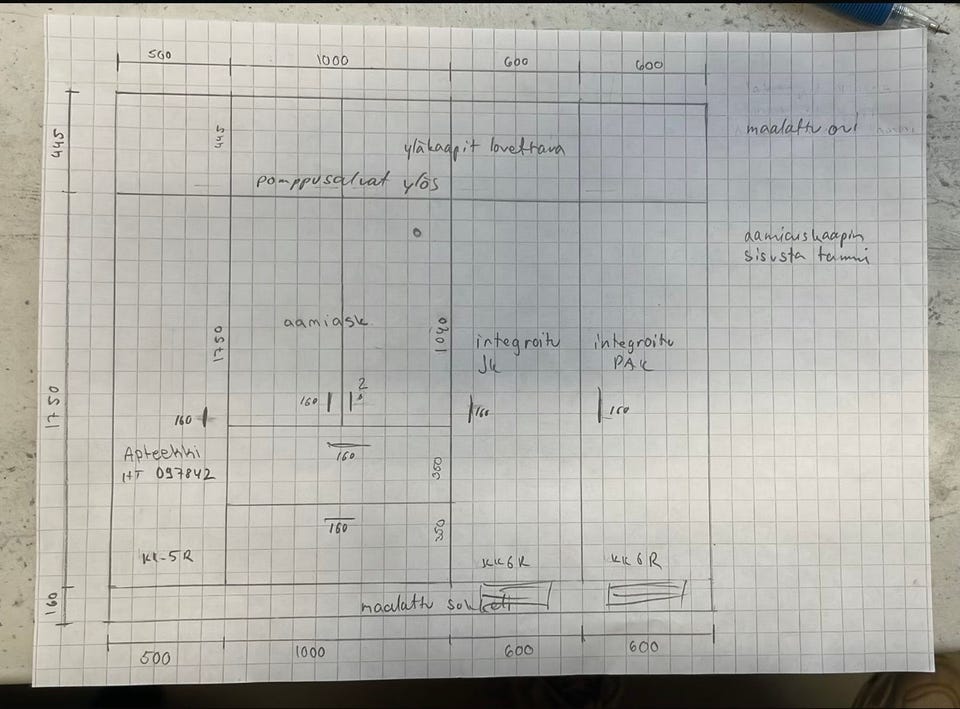 500 1000 600 600
445
445
maalattu ovi
yläkaapit lovettava
pomppusalvat ylös
aamiaskaapin
sisusta tammi
aamiask.
1750
1750
1040
integroitu
JK
integroitu
PAK
160
160
2
160
160
160
Apteekki
HT 097842
350
160
350
KK-5R
KK6R
KK6R
160
maalattu sokkeli
500 1000 600 600